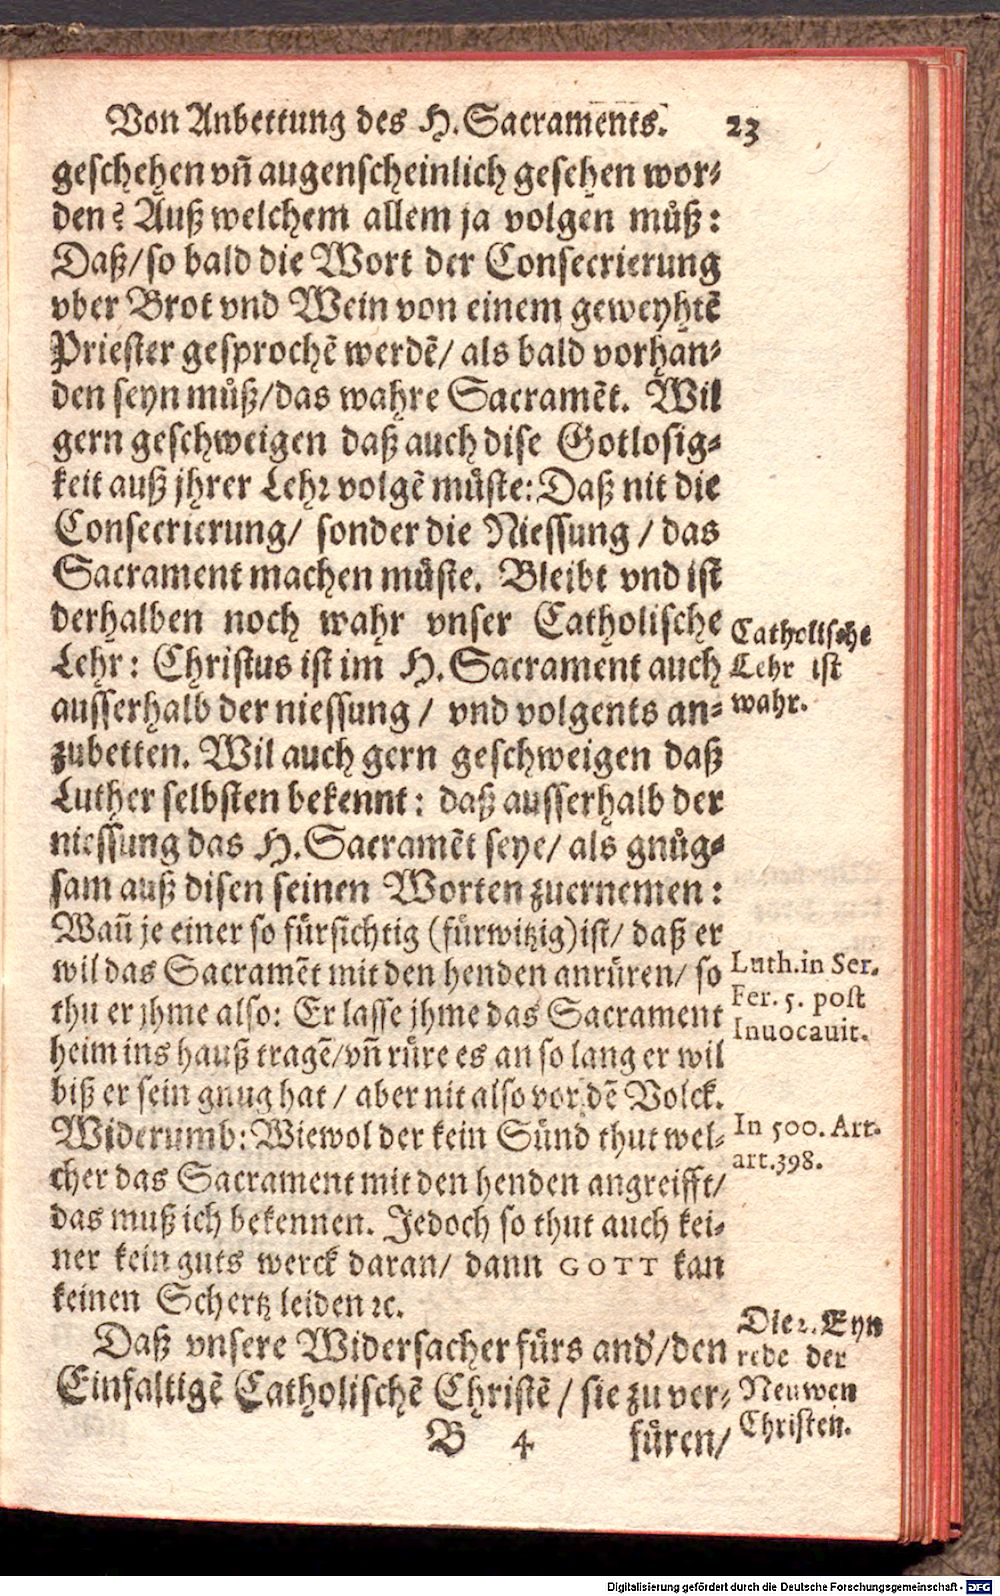 Von Anbettung des H. Sacraments. 23
geschehen vñ augenscheinlich gesehen wor⸗
den? Auß welchem allem ja volgen muͤß:
Daß/so bald die Wort der Consecrierung
vber Brot vnd Wein von einem geweyhtẽ
Priester gesprochẽ werdẽ/ als bald vorhan⸗
den seyn muͤß/das wahre Sacramẽt. Wil
gern geschweigen daß auch dise Gotlosig⸗
keit auß jhrer Lehꝛ volgẽ muͤste: Daß nit die
Consecrierung/ sonder die Niessung / das
Sacrament machen muͤste. Bleibt vnd ist
derhalben noch wahr vnser Catholische
Lehr: Christus ist im H. Sacrament auch
ausserhalb der niessung / vnd volgents an⸗
zubetten. Wil auch gern geschweigen daß
Luther selbsten bekennt: daß ausserhalb der
niessung das H. Sacramẽt seye/ als gnuͤg⸗
sam auß disen seinen Worten zuernemen:
Wañ je einer so fuͤrsichtig (fuͤrwitzig) ist/ daß er
wil das Sacramẽt mit den henden anruͤren/ so
thu er jhme also: Er lasse jhme das Sacrament
heim ins hauß tragẽ/vñ ruͤre es an so lang er wil
biß er sein gnug hat / aber nit also vor dẽ Volck.
Widerumb: Wiewol der kein Suͤnd thut wel⸗
cher das Sacrament mit den henden angreifft/
das muß ich bekennen. Jedoch so thut auch kei⸗
ner kein guts werck daran/ dann GOTT kan
keinen Schertz leiden ꝛc.
Daß vnsere Widersacher fuͤrs and'/den
Einfaltigẽ Catholischẽ Christẽ / sie zu ver⸗
B 4 fuͤren/
Catholische
Lehr ist
wahr.
Luth. in Ser.
Fer. 5. post
Inuocauit.
In 500. Art.
art. 398.
Die 2. Eyn
rede der
Neuwen
Christen.
Digitalisierung gefördert durch die Deutsche Forschungsgemeinschaft - DFG